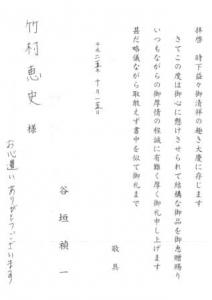 拝啓 時下益々御清祥の趣き大慶に存じます
さてこの度は御心に懸けさせられて結構な御品を御恵贈賜り
いつもながらの御厚情の程誠に有難く厚く御礼申し上げます
甚だ略儀ながら取敢えず書中を似て御礼まで
敬具
平成二五年十月二五日
谷垣禎一
竹村恵史 様
お心遣いありがとうございます